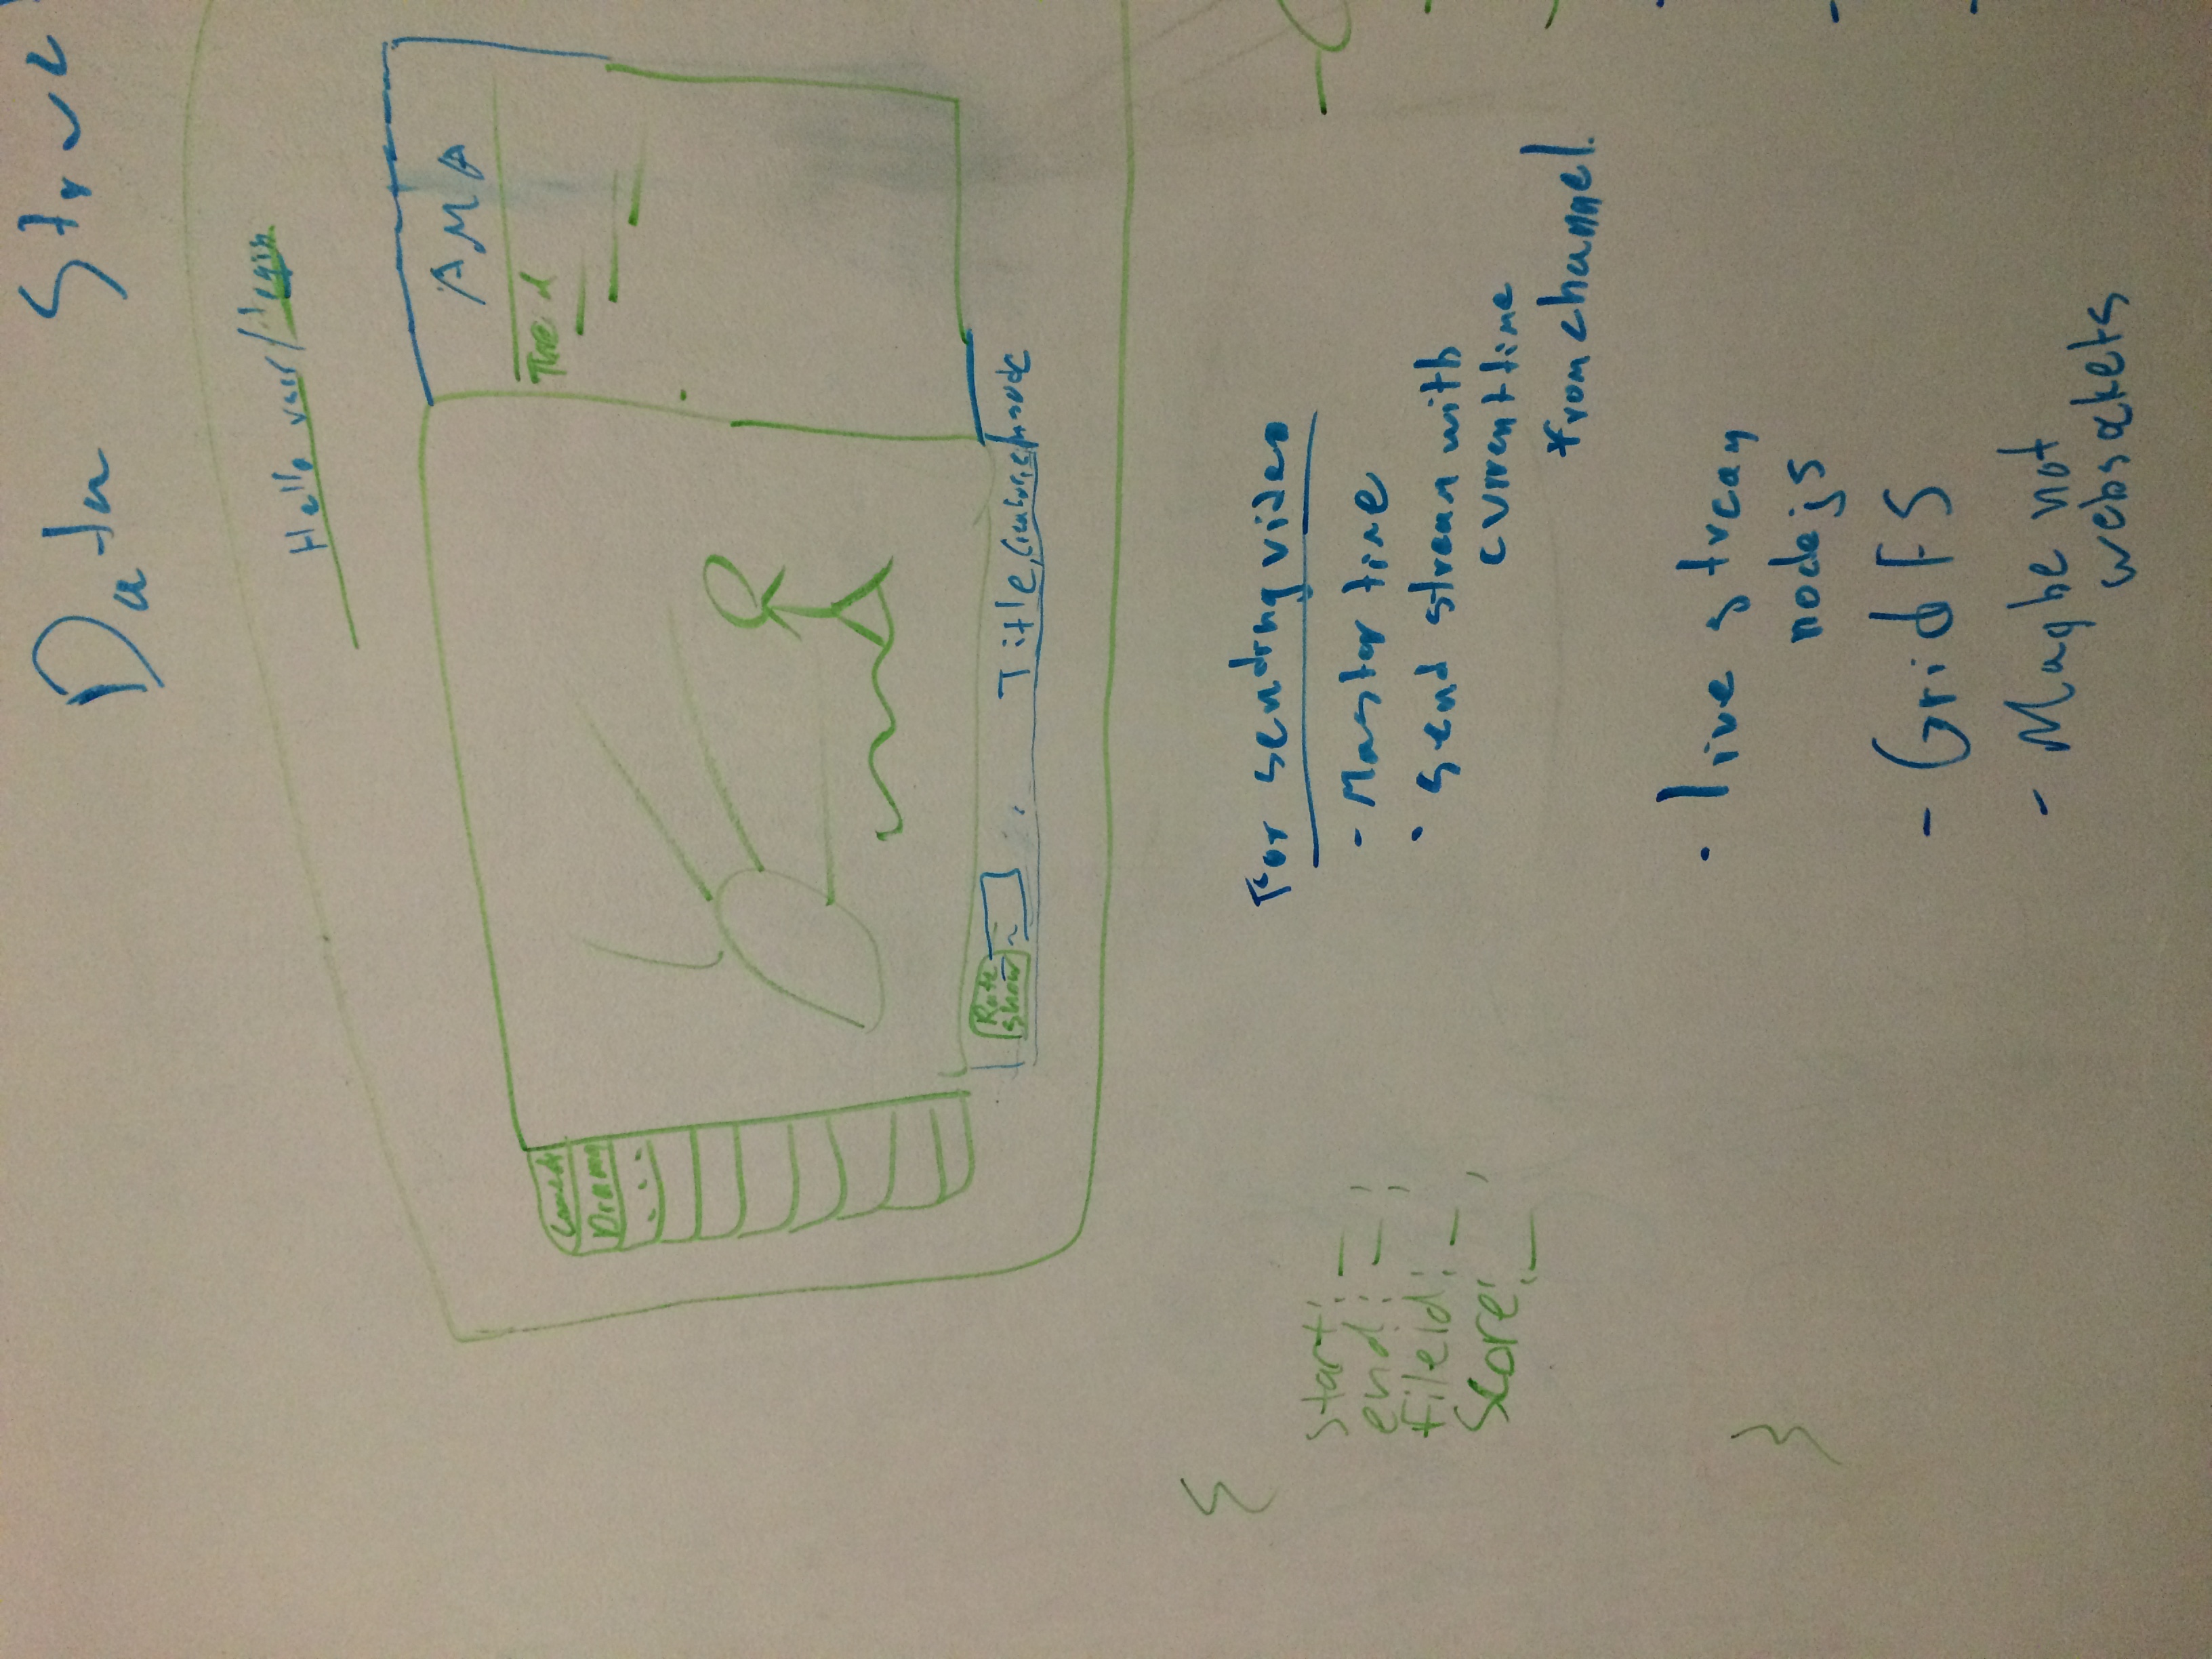 Data Struc
Hello user/login
AMA
Thre d
Comedy
Drama
...
Rate
show
Title,
{
start: _
end: _ ,
Fileid: _ ,
Score: _
}
For sending video
- Master time
• send stream with
current time
from channel.
• live stream
nodejs
- GridFS
- Maybe not
websockets